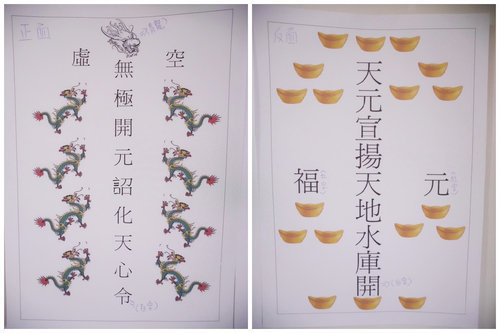 正面
虛
空
無極開元詔化天心令
反面
天元宣揚天地水庫開
福
元